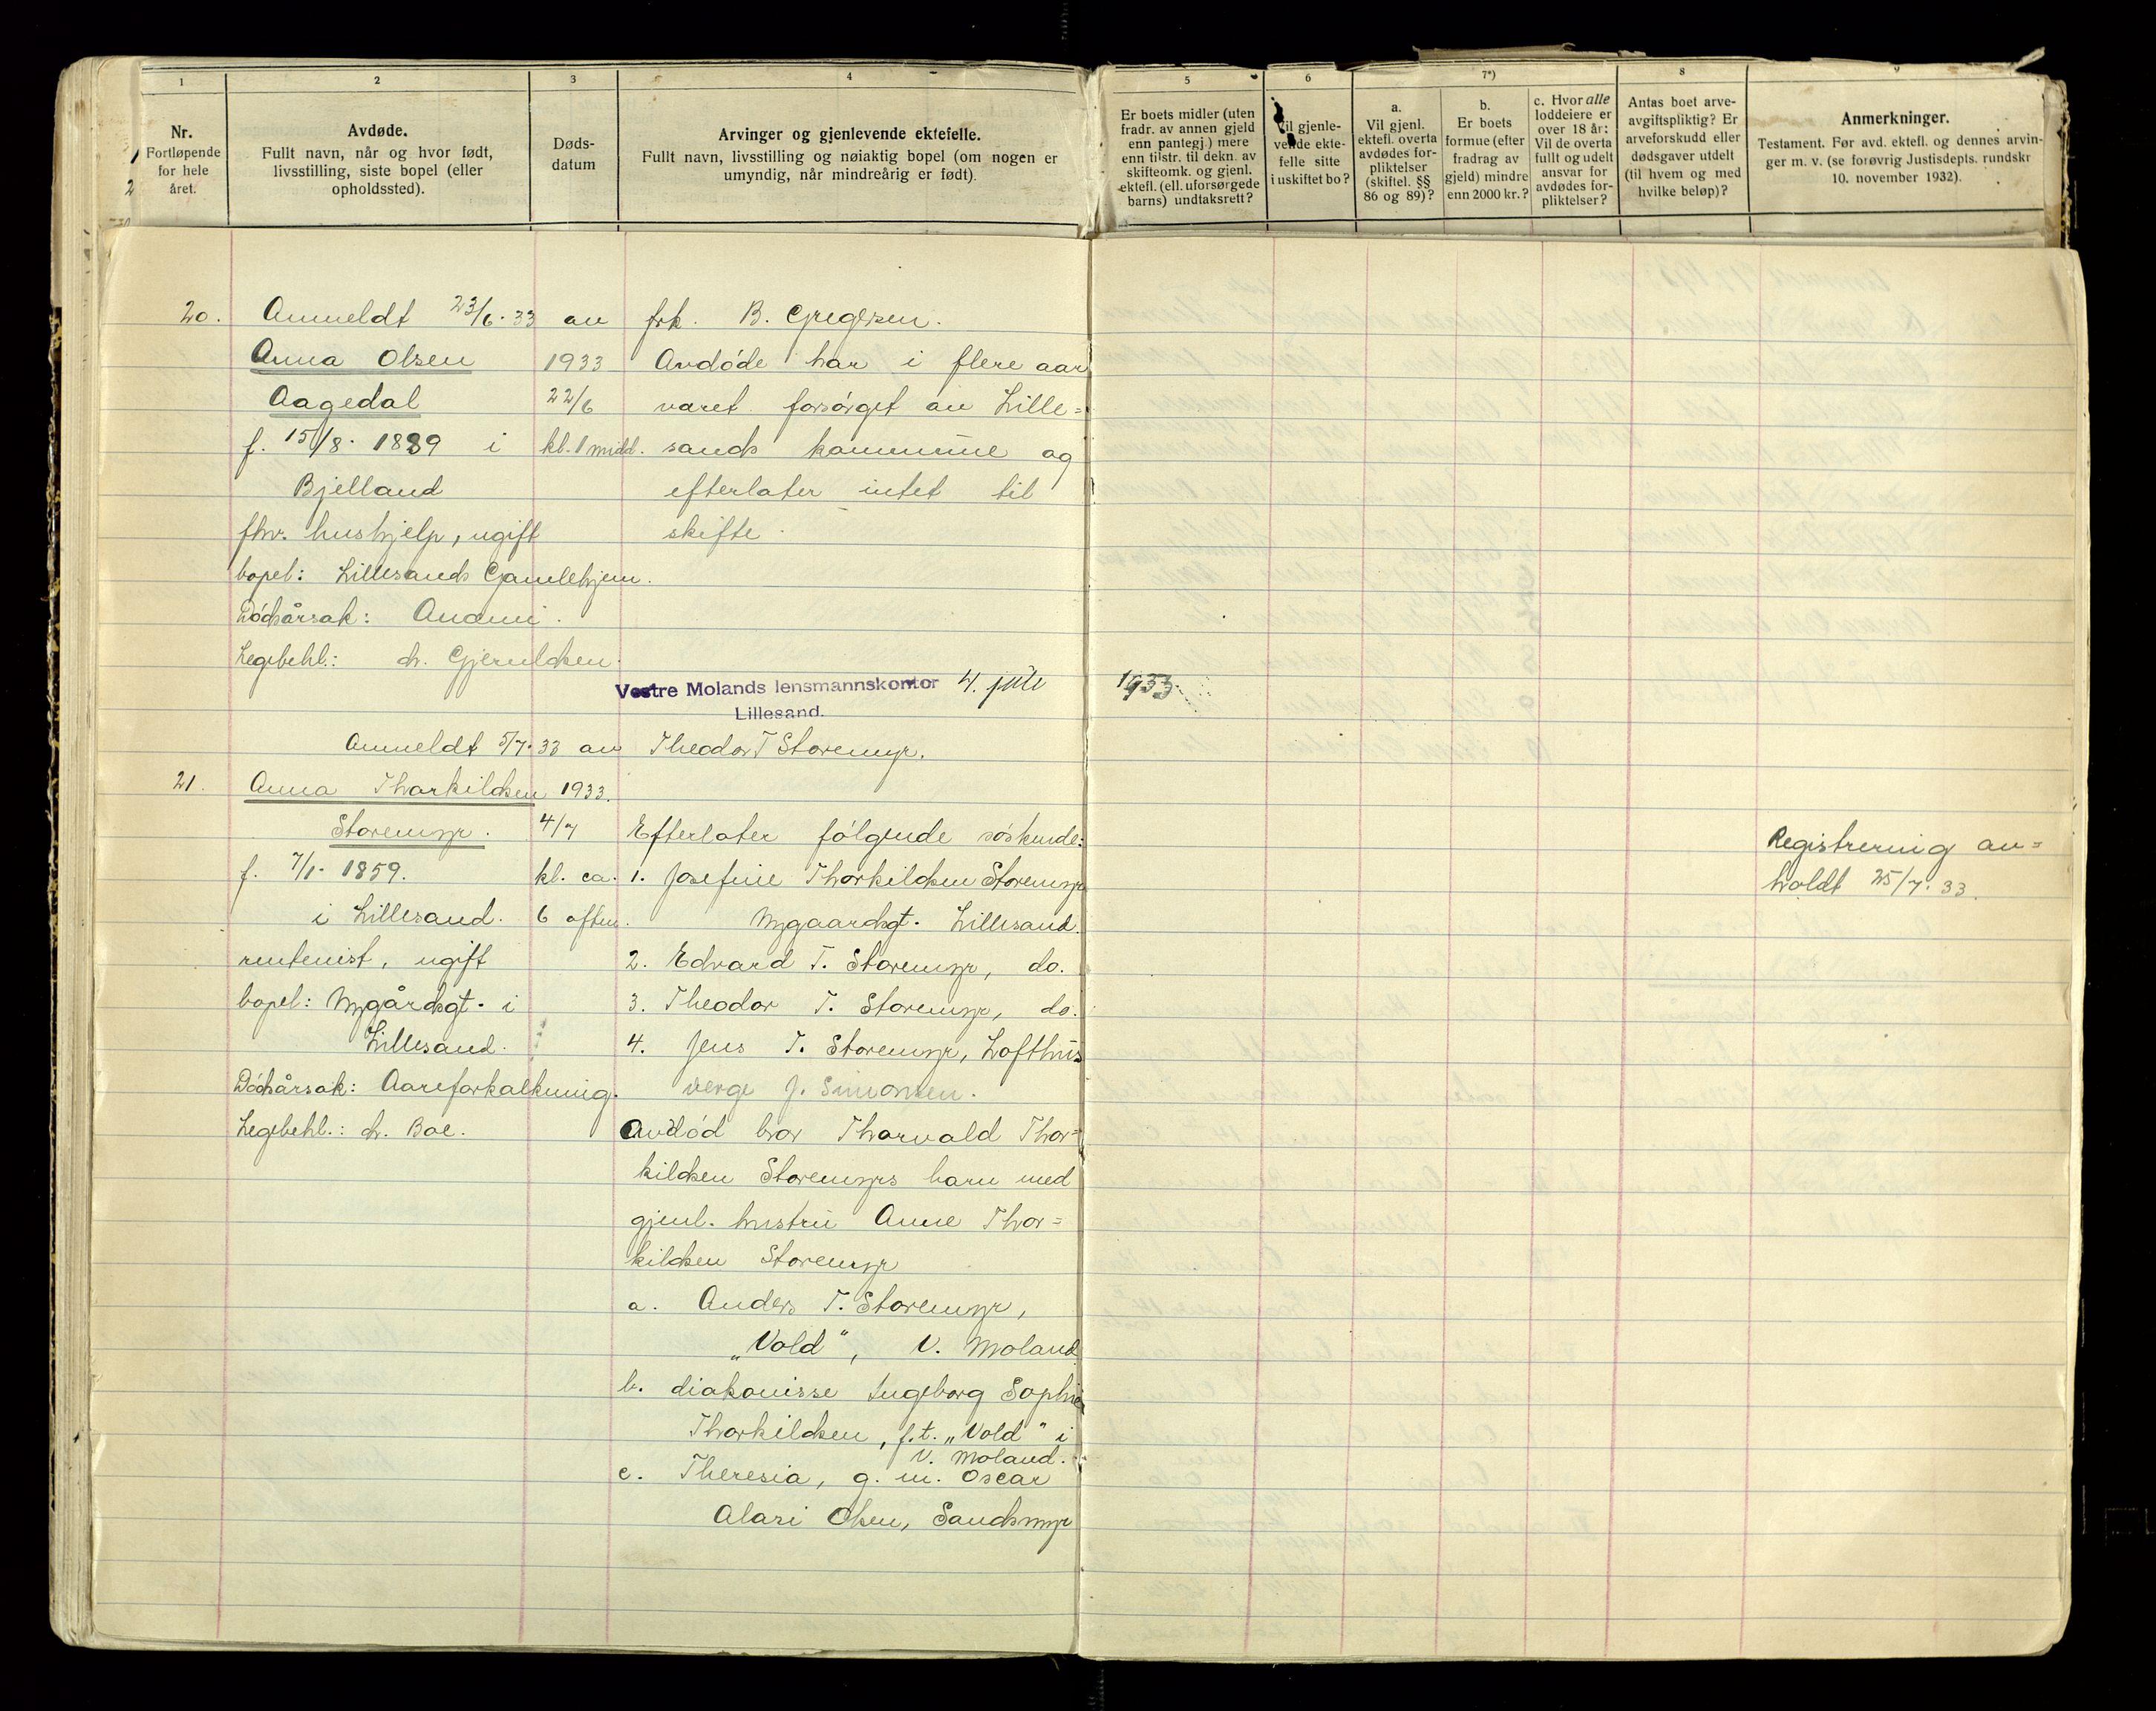 1 2 3 4 5 6 7*) 8 9
Nr.
Fortløpende
for hele
året.
Avdøde.
Fullt navn, når og hvor født,
livsstilling, siste bopel (eller
opholdssted).
Døds-
datum
Arvinger og gjenlevende ektefelle.
Fullt navn, livsstilling og nøiaktig bopel (om nogen er
umyndig, når mindreårig er født).
Er boets midler (uten
fradr. av annen gjeld
enn pantegj.) mere
enn tilstr. til dekn. av
skifteomk. og gjenl.
ektefl. (ell. uforsørgede
barns) undtaksrett?
Vil gjenle-
vende ekte-
felle sitte
i uskiftet bo?
a.
Vil gjenl.
ektefl. overta
avdødes for-
pliktelser
(skiftel. §§
86 og 89)?
b.
Er boets
formue (efter
fradrag av
gjeld) mindre
enn 2000 kr.?
c. Hvor alle
loddeiere er
over 18 år:
Vil de overta
fullt og udelt
ansvar for
avdødes for-
pliktelser?
Antas boet arve-
avgiftspliktig? Er
arveforskudd eller
dødsgaver utdelt
(til hvem og med
hvilke beløp)?
Anmerkninger.
Testament. Før avd. ektefl. og dennes arvin-
ger m. v. (se forøvrig Justisdepts. rundskr
10. november 1932).
20. Anmeldt 23/6. 33 av frk. B. Gregersen.
Anna Olsen 1933 Avdøde har i flere aar
Aagedal 22/6 været forsørget av Lille=
f. 15/8. 1889 i kl. 1 midd. sands kommune og
Bjelland efterlater intet til
fhv. hushjelp, ugift skifte.
bopel: Lillesands Gamlehjem.
Dødsårsak: Anæmi.
Legebehl.: dr. Gjeruldsen.
Vestre Molands lensmannskontor 4. juli 1933.
Lillesand.
Anmeldt 5/7. 33 av Theodor T Storemyr.
21. Anna Thorkildsen 1933.
Storemyr. 4/7 Efterlater følgende søskende:
f. 7/1. 1859. kl. ca. 1. Josefine Thorkildsen Storemyr
i Lillesand. 6 aften. Nygaardsgt. Lillesand.
rentenist, ugift 2. Edvard T. Storemyr, do.
bopel: Nygårdsgt. i 3. Theodor T. Storemyr, do.
Lillesand. 4. Jens T. Storemyr, Lofthus
Dødsårsak: Aareforkalkning. verge J. Simonsen.
Legebehl.: dr. Boe. Avdød bror Thorvald Thor=
kildsen Storemyrs barn med
gjenl. hustru Anne Thor=
kildsen Storemyr
a. Anders T. Storemyr,
„Vold“, V. Moland
b. diakonisse Ingeborg Sophie
Thorkildsen, f.t. „Vold“ i
V. Moland.
c. Theresia, g. m. Oscar
Alari Olsen, Sandsmyr
Registrering av=
holdt 25/7. 33.